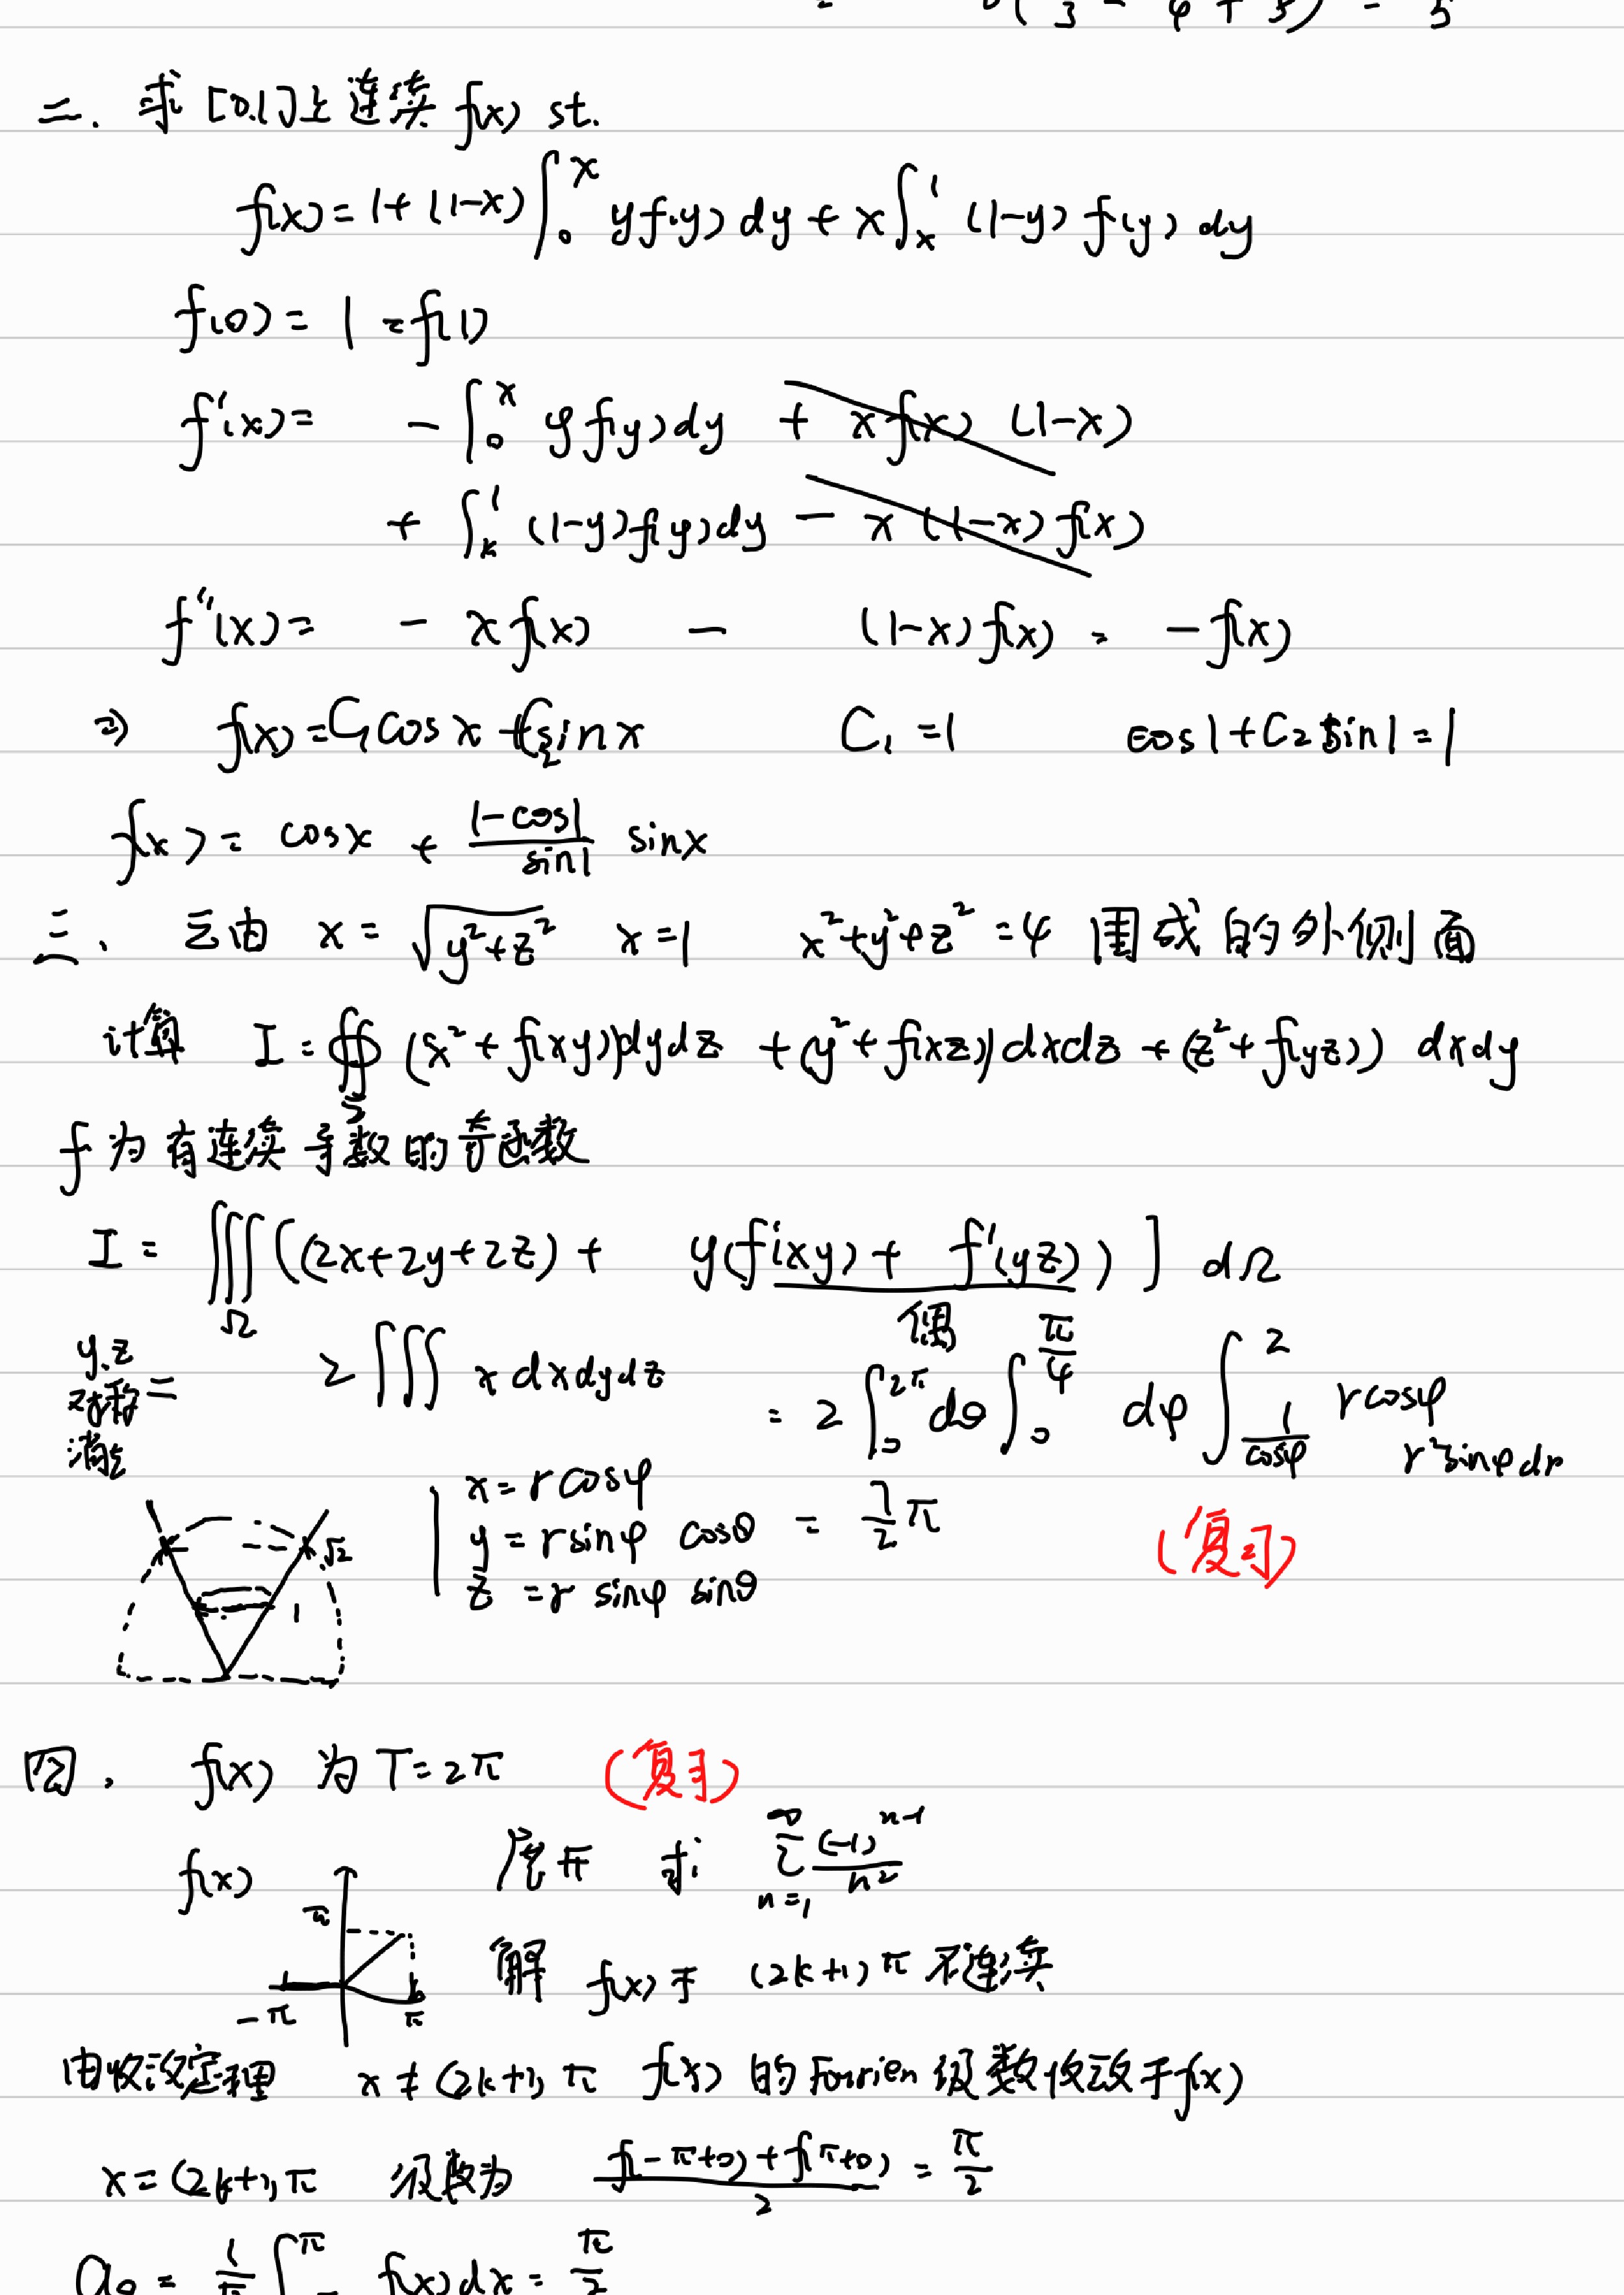 二. 求[0,1]上连续 f(x) st.
f(x) = 1 + (1-x)∫₀ˣ y f(y) dy + x∫ₓ¹ (1-y) f(y) dy
f(0) = 1 = f(1)
f'(x) = - ∫₀ˣ y f(y) dy + x f(x) (1-x)
+ ∫ₓ¹ (1-y) f(y) dy - x (1-x) f(x)
f''(x) = - x f(x) - (1-x) f(x) = - f(x)
⇒ f(x) = C₁ cos x + C₂ sin x C₁ = 1 cos1 + C₂ sin1 = 1
f(x) = cosx + (1-cos1)/(sin1) sinx
三、 Σ由 x = √(y²+z²) x=1 x²+y²+z²=4 围成的外侧面
计算 I = ∯_Σ (x² + f(xy)) dydz + (y² + f(xz)) dxdz + (z² + f(yz)) dxdy
f 为有连续导数的奇函数
I = ∭_Ω [(2x+2y+2z) + y(f'(xy) + f'(yz))] dΩ
偶
y.z 对称 消去 = 2∭ x dxdydz = 2∫₀^{2π} dθ ∫₀^{π/4} dφ ∫_{1/cosφ}^{2} r cosφ r² sinφ dr
x = r cosφ
y = r sinφ cosθ = 7/2 π (复习)
z = r sinφ sinθ
√2
1
四. f(x) 为 T=2π (复习)
f(x) 展开 求 ∑_{n=1}^{∞} (-1)^{n-1}/n²
π
-π π
解 f(x)于 (2k+1)π 不连续
由收敛定理 x ≠ (2k+1)π f(x) 的 Fourier 级数收敛于f(x)
x = (2k+1)π 级数为 (f(-π+0) + f(π+0))/2 = π/2
a₀ = 1/π ∫ f(x) dx = π/2